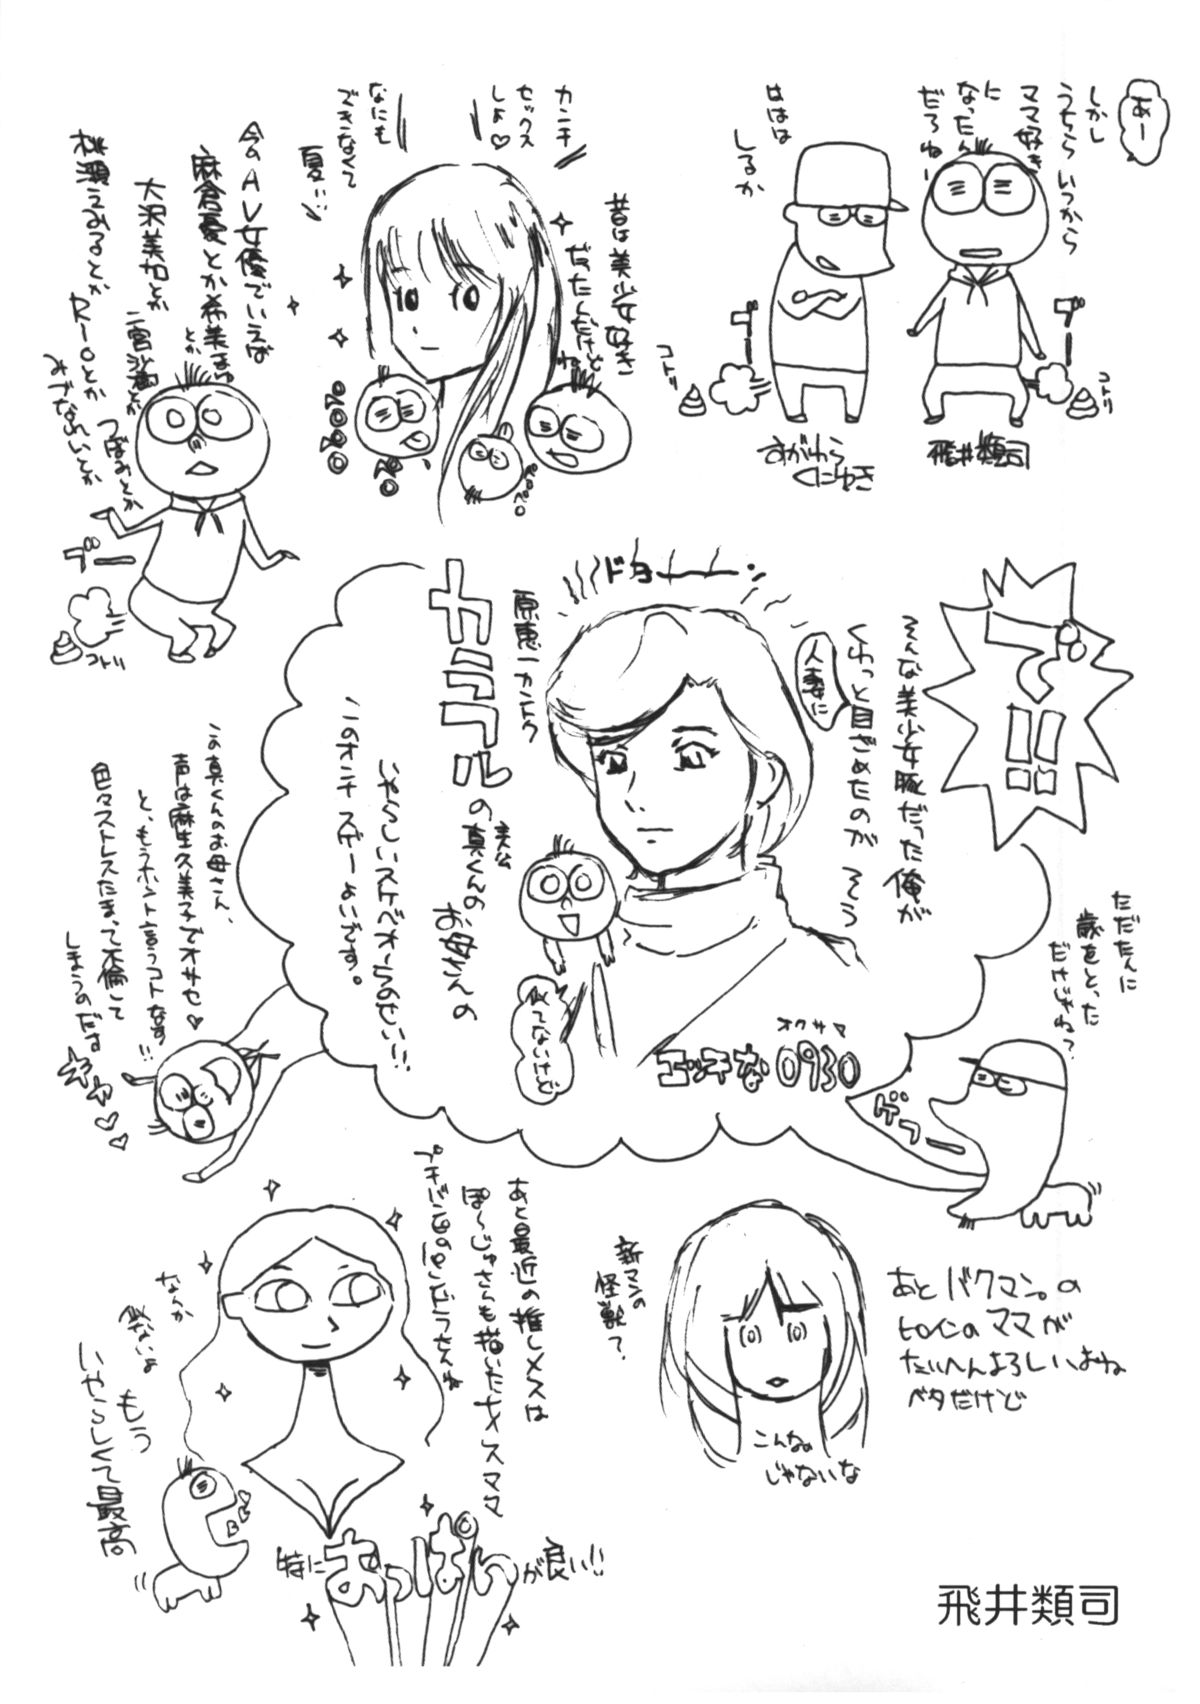 あー
しかし
うちらいつから
ママ好き
に
なったん
だろねー
ははは
しるか
ブー
コトリ
ブー
コトリ
飛井類司
すがわら
くにゆき
カンチ
セックス
しよ♡
なにも
ズキなくて
夏!!
昔は美少女好き
だったんだけど
ね
ペロペロ
今のAV女優でいえば
麻倉憂とか希美まゆ
とか
大沢美加とか
二宮沙樹とか
つぼみとか
桃瀬えみるとか
Rioとか
みづなれいとか
ブー
コトリ
で!!
そんな美少女豚だった俺が
くわっと目ざめたのが そう
人妻に
ドヨーーーン
原恵一カントク
カラフルの
真くんの
お母さんの
いやらしいスケベオーラのせい!!
このオンナ スゲーよいです。
似てないけど
オクサマ
エッチな0930
ただたんに
歳をとった
だけじゃね?
ゲフー
この真くんのお母さん、
声は麻生久美子でオサセ♡
と、もうホント言うコトなす!!
色々ストレスたまって不倫して
しまうのだす
キャ♡♡
あと最近の推しメスは
ぽ〜じゅさらも描いたナメスママ
なんか
似ないよ
もう
いやらしくて最高
特におっぱいが良い!!
新マンの
怪獣?
こんなの
じゃないな
あとバクマン。の
ヒロインのママが
たいへんよろしいよね
ベタだけど
飛井類司